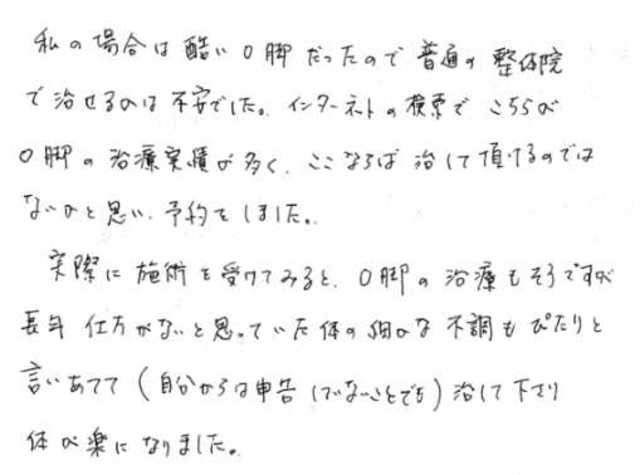 私の場合は酷いO脚だったので普通の整体院
で治せるのは不安でした。インターネットの検索でこちらが
O脚の治療実績が多く、ここならば治して頂けるのでは
ないかと思い、予約をしました。
実際に施術を受けてみると、O脚の治療もそうですが
長年仕方がないと思っていた体の細かな不調もぴたりと
言いあてて（自分からは申告してないことでも）治して下さり
体が楽になりました。